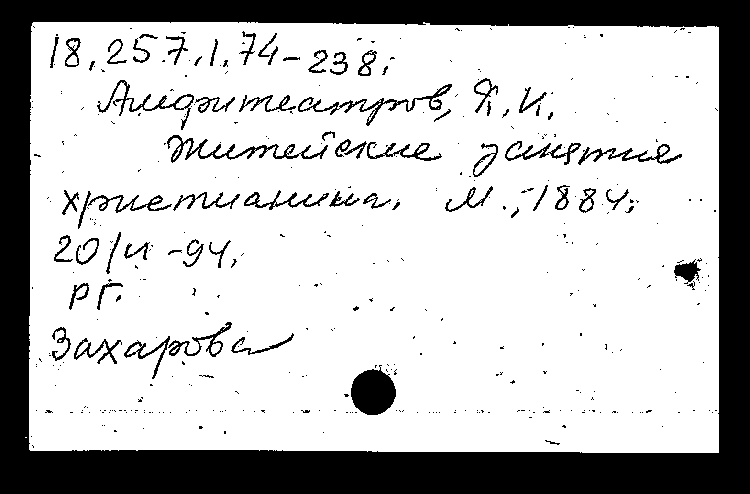 18.257.1.74-238;
Амфитеатров, Я.И.
Житейские занятия
христианина. М., 1884;
20/и -94.
РГ.
Захарова